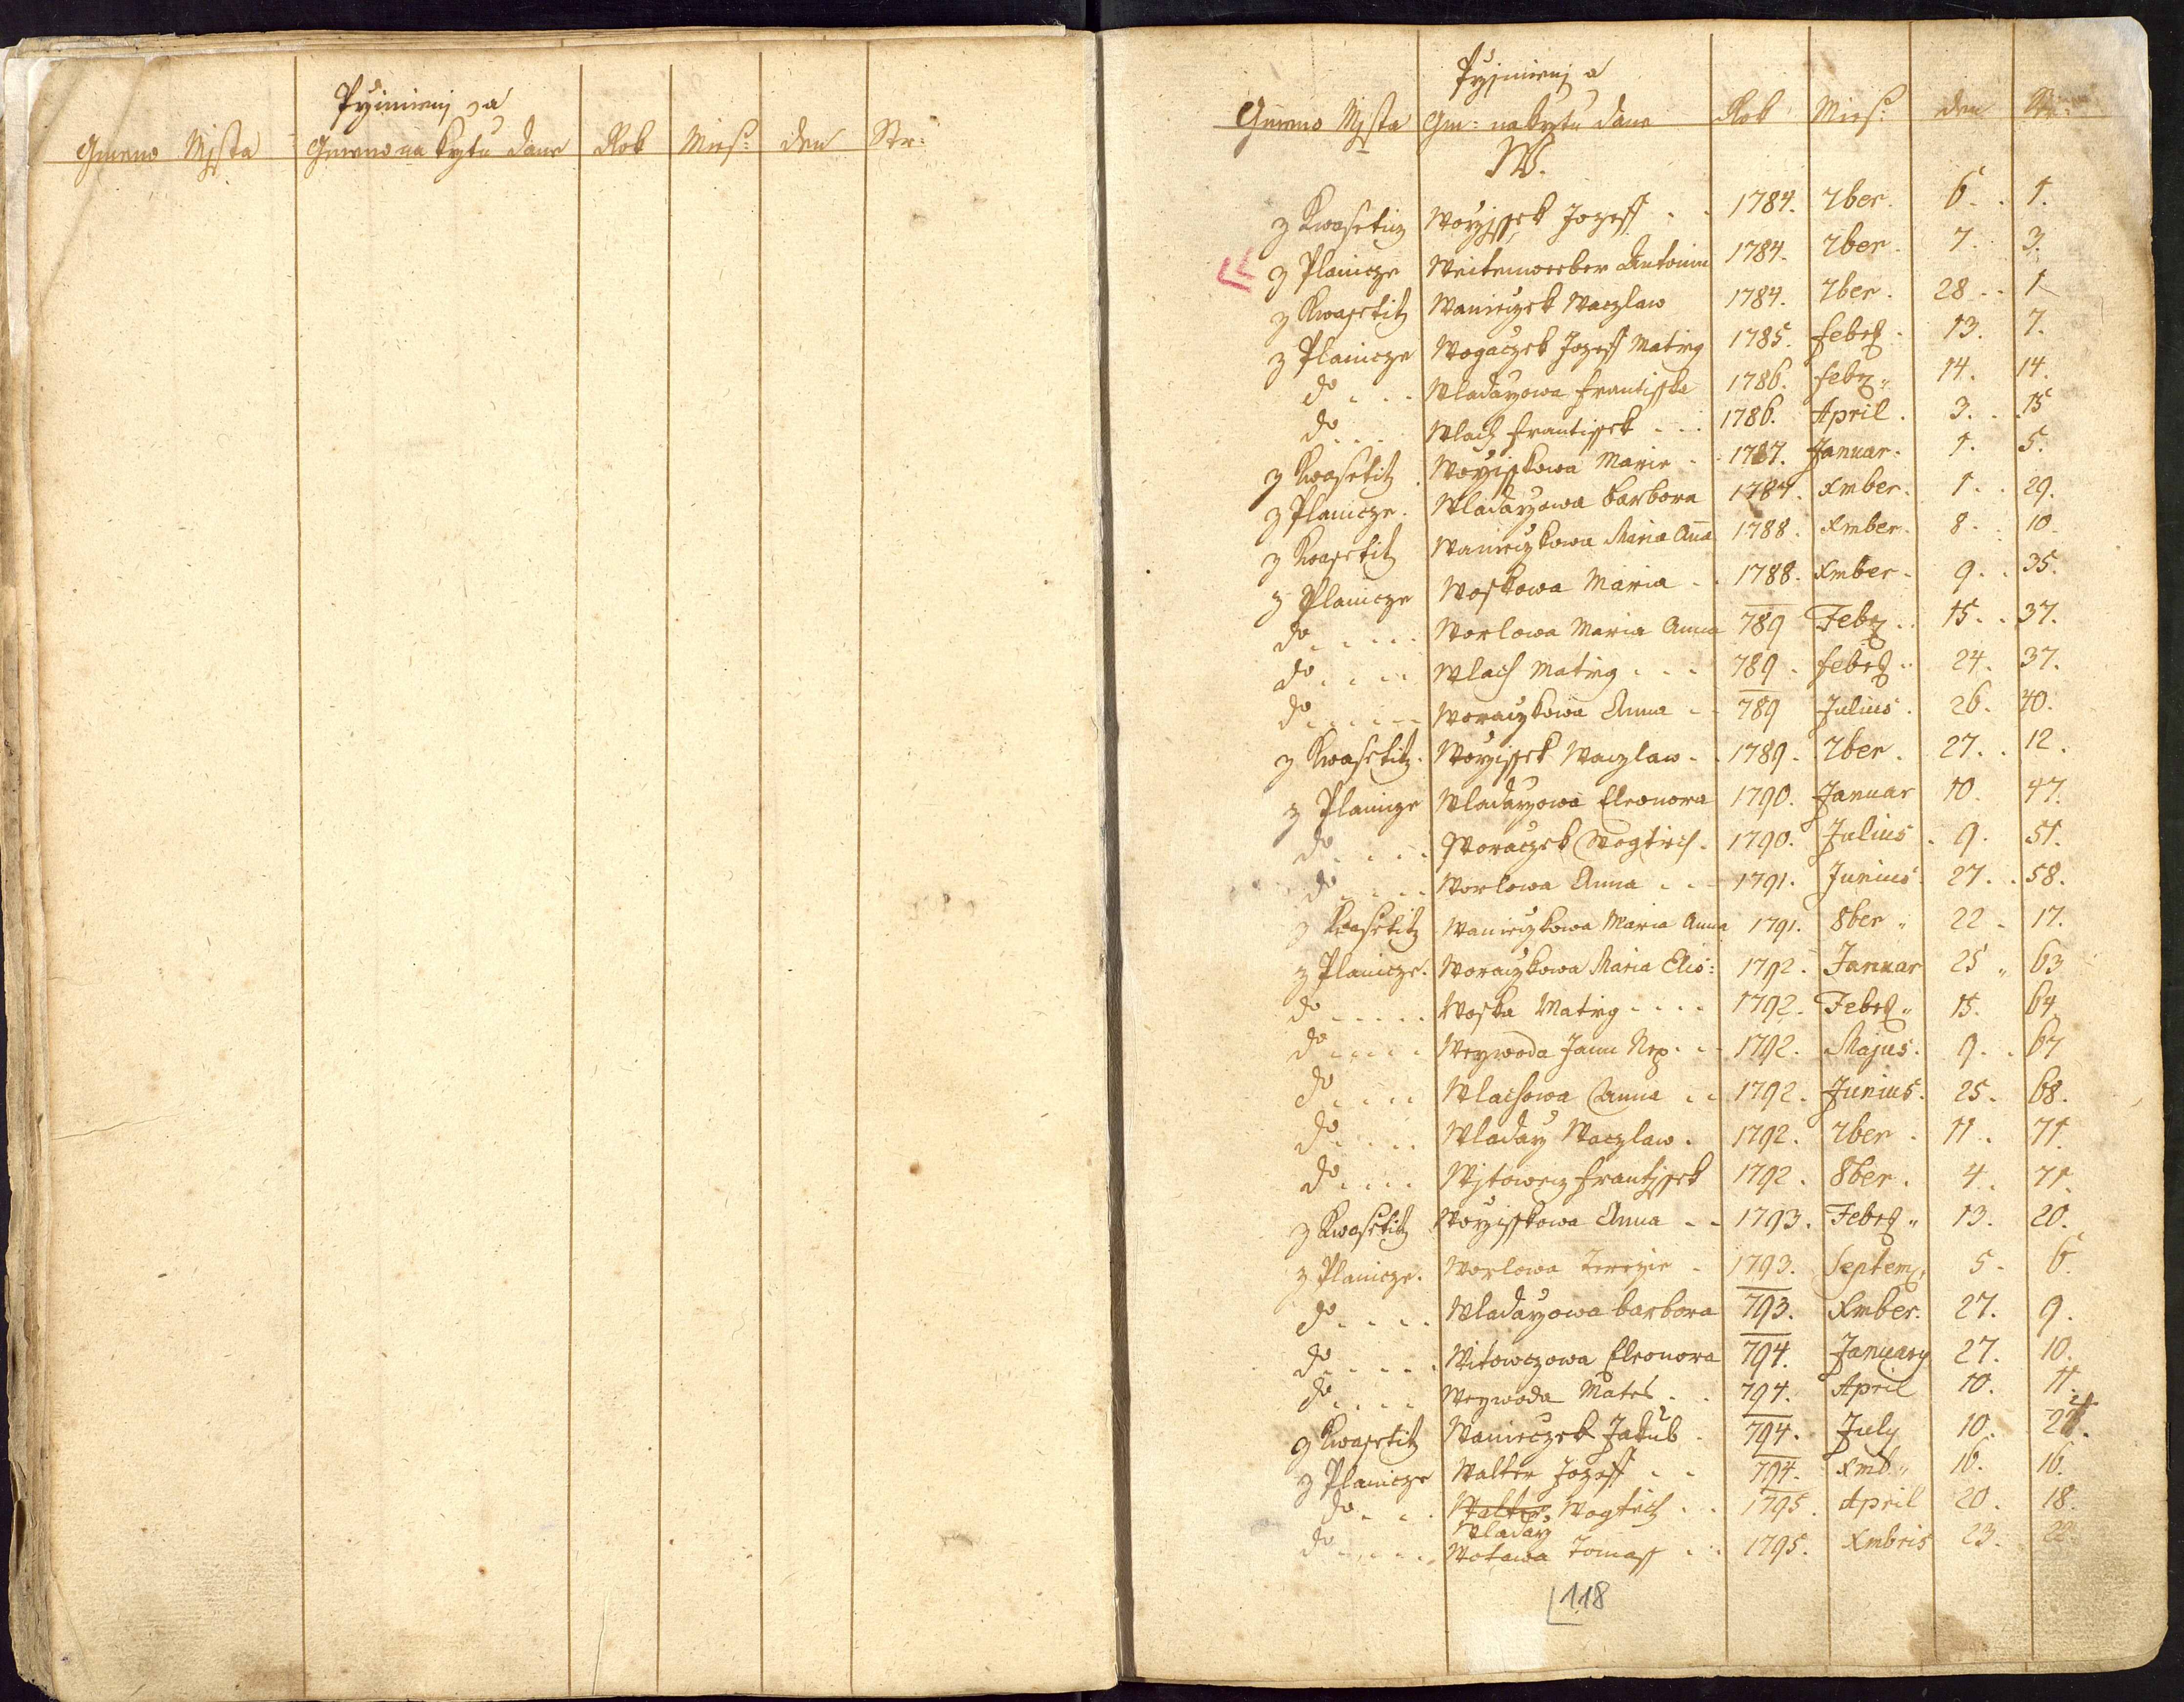 Pržijmienj a
Gmeno Mjsta Gmeno na krztu dane Rok Mies: den Str:
Pržijmienj a
Gmeno Mjsta Gm: na krztu dane Rok Mies: den Str:
W.
z Kwasetitz Woržjssek Jozeff 1784. 7ber. 6. 1.
z Planicze Weitenweber Antonin 1784. 7ber. 7. 3.
z Kwasetitz Wanieczek Waczlaw 1784. 7ber. 28. 1
z Planicze Wogaczek Jozeff Matieg 1785. febr. 13. 7.
do Wladaržowa Frantisska 1786. feb. 14. 14.
do Wlach Frantissek 1786. April. 3. 15
z Kwasetitz Woržisskowa Marie 1787. Januar. 1. 5.
z Planicze. Wladaržowa Barbora 1787. Xmber. 1. 29.
z Kwasetitz Wanieczkowa Maria Aña 1788. Xmber. 8. 10
z Planicze Woskowa Maria 1788. Xmber. 9. 35.
do Worlowa Maria Anna 789 Feb. 15. 37.
do Wlach Matieg 789. febr. 24. 37.
do Woraczkowa Anna 789 Julius. 26. 40.
z Kwasetitz. Woržissek Waczlaw. 1789. 7ber. 27. 12.
z Planicze Wladaržowa Eleonora 1790. Januar 10. 47.
do Woraczek Wogtiech. 1790. Julius. 9. 51.
do Worlowa Anna 1791. Junius. 27. 58.
z Kwasetitz Wanieczkowa Maria Anna 1791. 8ber 22 17.
z Planicze. Woraczkowa Maria Elis: 1792. Januar 25 63
do Woska Matieg 1792. Febr. 15. 64.
do Weywoda Jann Nep. 1792. Majus. 9. 67
do Wlachowa Anna 1792. Junius. 25. 68.
do Wladarž Waczlaw. 1792. 7ber. 11. 71.
do Wjtowecz Frantjssek 1792. 8ber. 4. 71.
z Kwasetitz Woržisskowa Anna 1793. Febr. 13. 20.
z Planicze. Worlowa Terezie 1793. Septem. 5. 6.
do Wladaržowa Barbora 793. Xmber. 27. 9.
do Witowczowa Eleonora 794. January 27. 10.
do Weywoda Mates 794. April 10. 11.
z Kwasetitz Wanieczek Jakub 794. July 10.
z Planicze Walter Jozeff 794. Xmb. 16. 16.
do Walter Wogtiech 1795. April 20. 18.
Wladarž
do Wotawa Tomass 1795. Xmbris 23. 22
118